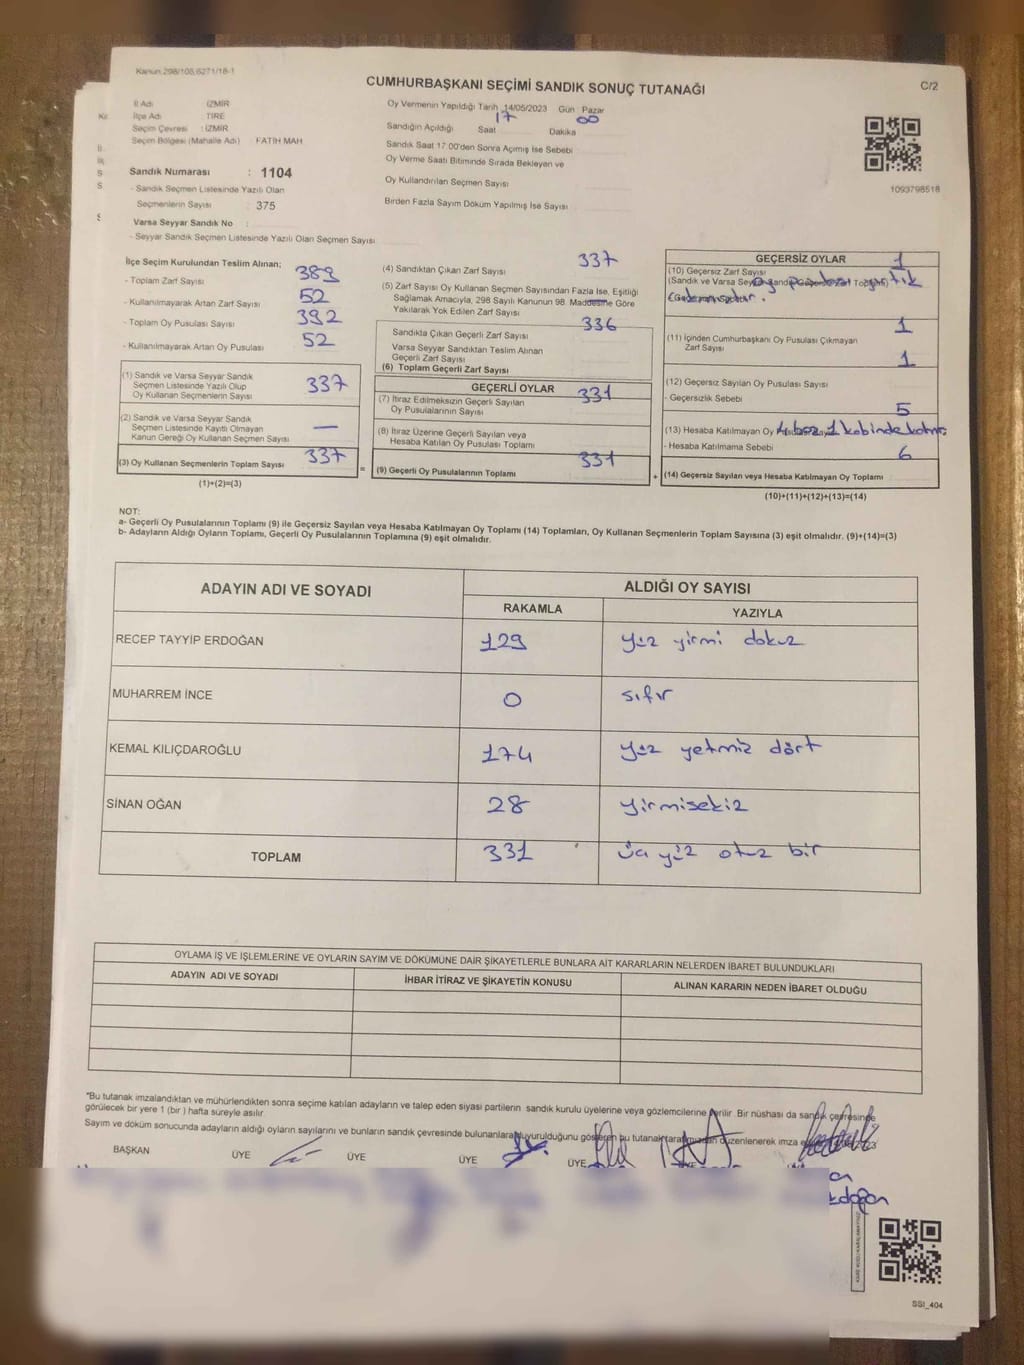 Kanun.298/105,6271/18-1
CUMHURBAŞKANI SEÇİMİ SANDIK SONUÇ TUTANAĞI
C/2
İl Adı İZMİR
İlçe Adı TİRE
Seçim Çevresi : İZMİR
Seçim Bölgesi (Mahalle Adı) FATİH MAH
Sandık Numarası : 1104
- Sandık Seçmen Listesinde Yazılı Olan
Seçmenlerin Sayısı : 375
Varsa Seyyar Sandık No :
- Seyyar Sandık Seçmen Listesinde Yazılı Olan Seçmen Sayısı
Oy Vermenin Yapıldığı Tarih 14/05/2023 Gün : Pazar
Sandığın Açıldığı Saat 17 Dakika 00
Sandık Saat 17.00'den Sonra Açımış İse Sebebi
Oy Verme Saati Bitiminde Sırada Bekleyen ve
Oy Kullandırılan Seçmen Sayısı
Birden Fazla Sayım Döküm Yapılmış İse Sayısı
1093798518
İlçe Seçim Kurulundan Teslim Alınan;
- Toplam Zarf Sayısı 389
- Kullanılmayarak Artan Zarf Sayısı 52
- Toplam Oy Pusulası Sayısı 392
- Kullanılmayarak Artan Oy Pusulası 52
(1) Sandık ve Varsa Seyyar Sandık
Seçmen Listesinde Yazılı Olup
Oy Kullanan Seçmenlerin Sayısı 337
(2) Sandık ve Varsa Seyyar Sandık
Seçmen Listesinde Kayıtlı Olmayan
Kanun Gereği Oy Kullanan Seçmen Sayısı —
(3) Oy Kullanan Seçmenlerin Toplam Sayısı 337
(1)+(2)=(3)
(4) Sandıktan Çıkan Zarf Sayısı 337
(5) Zarf Sayısı Oy Kullanan Seçmen Sayısından Fazla İse, Eşitliği
Sağlamak Amacıyla, 298 Sayılı Kanunun 98. Maddesine Göre
Yakılarak Yok Edilen Zarf Sayısı
Sandıkta Çıkan Geçerli Zarf Sayısı 336
Varsa Seyyar Sandıktan Teslim Alınan
Geçerli Zarf Sayısı
(6) Toplam Geçerli Zarf Sayısı
=
GEÇERLİ OYLAR
(7) İtiraz Edilmeksizin Geçerli Sayılan
Oy Pusulalarının Sayısı 331
(8) İtiraz Üzerine Geçerli Sayılan veya
Hesaba Katılan Oy Pusulası Toplamı
(9) Geçerli Oy Pusulalarının Toplamı 331
+
GEÇERSİZ OYLAR
(10) Geçersiz Zarf Sayısı 1
(Sandık ve Varsa
(11) İçinden Cumhurbaşkanı Oy Pusulası Çıkmayan 1
Zarf Sayısı
1
(12) Geçersiz Sayılan Oy Pusulası Sayısı
- Geçersizlik Sebebi
5
(13) Hesaba Katılmayan Oy
- Hesaba Katılmama Sebebi
6
(14) Geçersiz Sayılan veya Hesaba Katılmayan Oy Toplamı
(10)+(11)+(12)+(13)=(14)
NOT:
a- Geçerli Oy Pusulalarının Toplamı (9) ile Geçersiz Sayılan veya Hesaba Katılmayan Oy Toplamı (14) Toplamları, Oy Kullanan Seçmenlerin Toplam Sayısına (3) eşit olmalıdır. (9)+(14)=(3)
b- Adayların Aldığı Oyların Toplamı, Geçerli Oy Pusulalarının Toplamına (9) eşit olmalıdır.
ADAYIN ADI VE SOYADI ALDIĞI OY SAYISI
RAKAMLA YAZIYLA
RECEP TAYYİP ERDOĞAN 129 yüz yirmi dokuz
MUHARREM İNCE 0 sıfır
KEMAL KILIÇDAROĞLU 174 yüz yetmiz dört
SİNAN OĞAN 28 yirmisekiz
TOPLAM 331 üç yüz otuz bir
OYLAMA İŞ VE İŞLEMLERİNE VE OYLARIN SAYIM VE DÖKÜMÜNE DAİR ŞİKAYETLERLE BUNLARA AİT KARARLARIN NELERDEN İBARET BULUNDUKLARI
ADAYIN ADI VE SOYADI İHBAR İTİRAZ VE ŞİKAYETİN KONUSU ALINAN KARARIN NEDEN İBARET OLDUĞU
*Bu tutanak imzalandıktan ve mühürlendikten sonra seçime katılan adayların ve talep eden siyasi partilerin sandık kurulu üyelerine veya gözlemcilerine verilir. Bir nüshası da sandık çevresinde
görülecek bir yere 1 (bir ) hafta süreyle asılır.
Sayım ve döküm sonucunda adayların aldığı oyların sayılarını ve bunların sandık çevresinde bulunanlara duyurulduğunu gösteren bu tutanak tarafımızdan düzenlenerek imza
BAŞKAN ÜYE ÜYE ÜYE ÜYE ÜYE
SSI_404